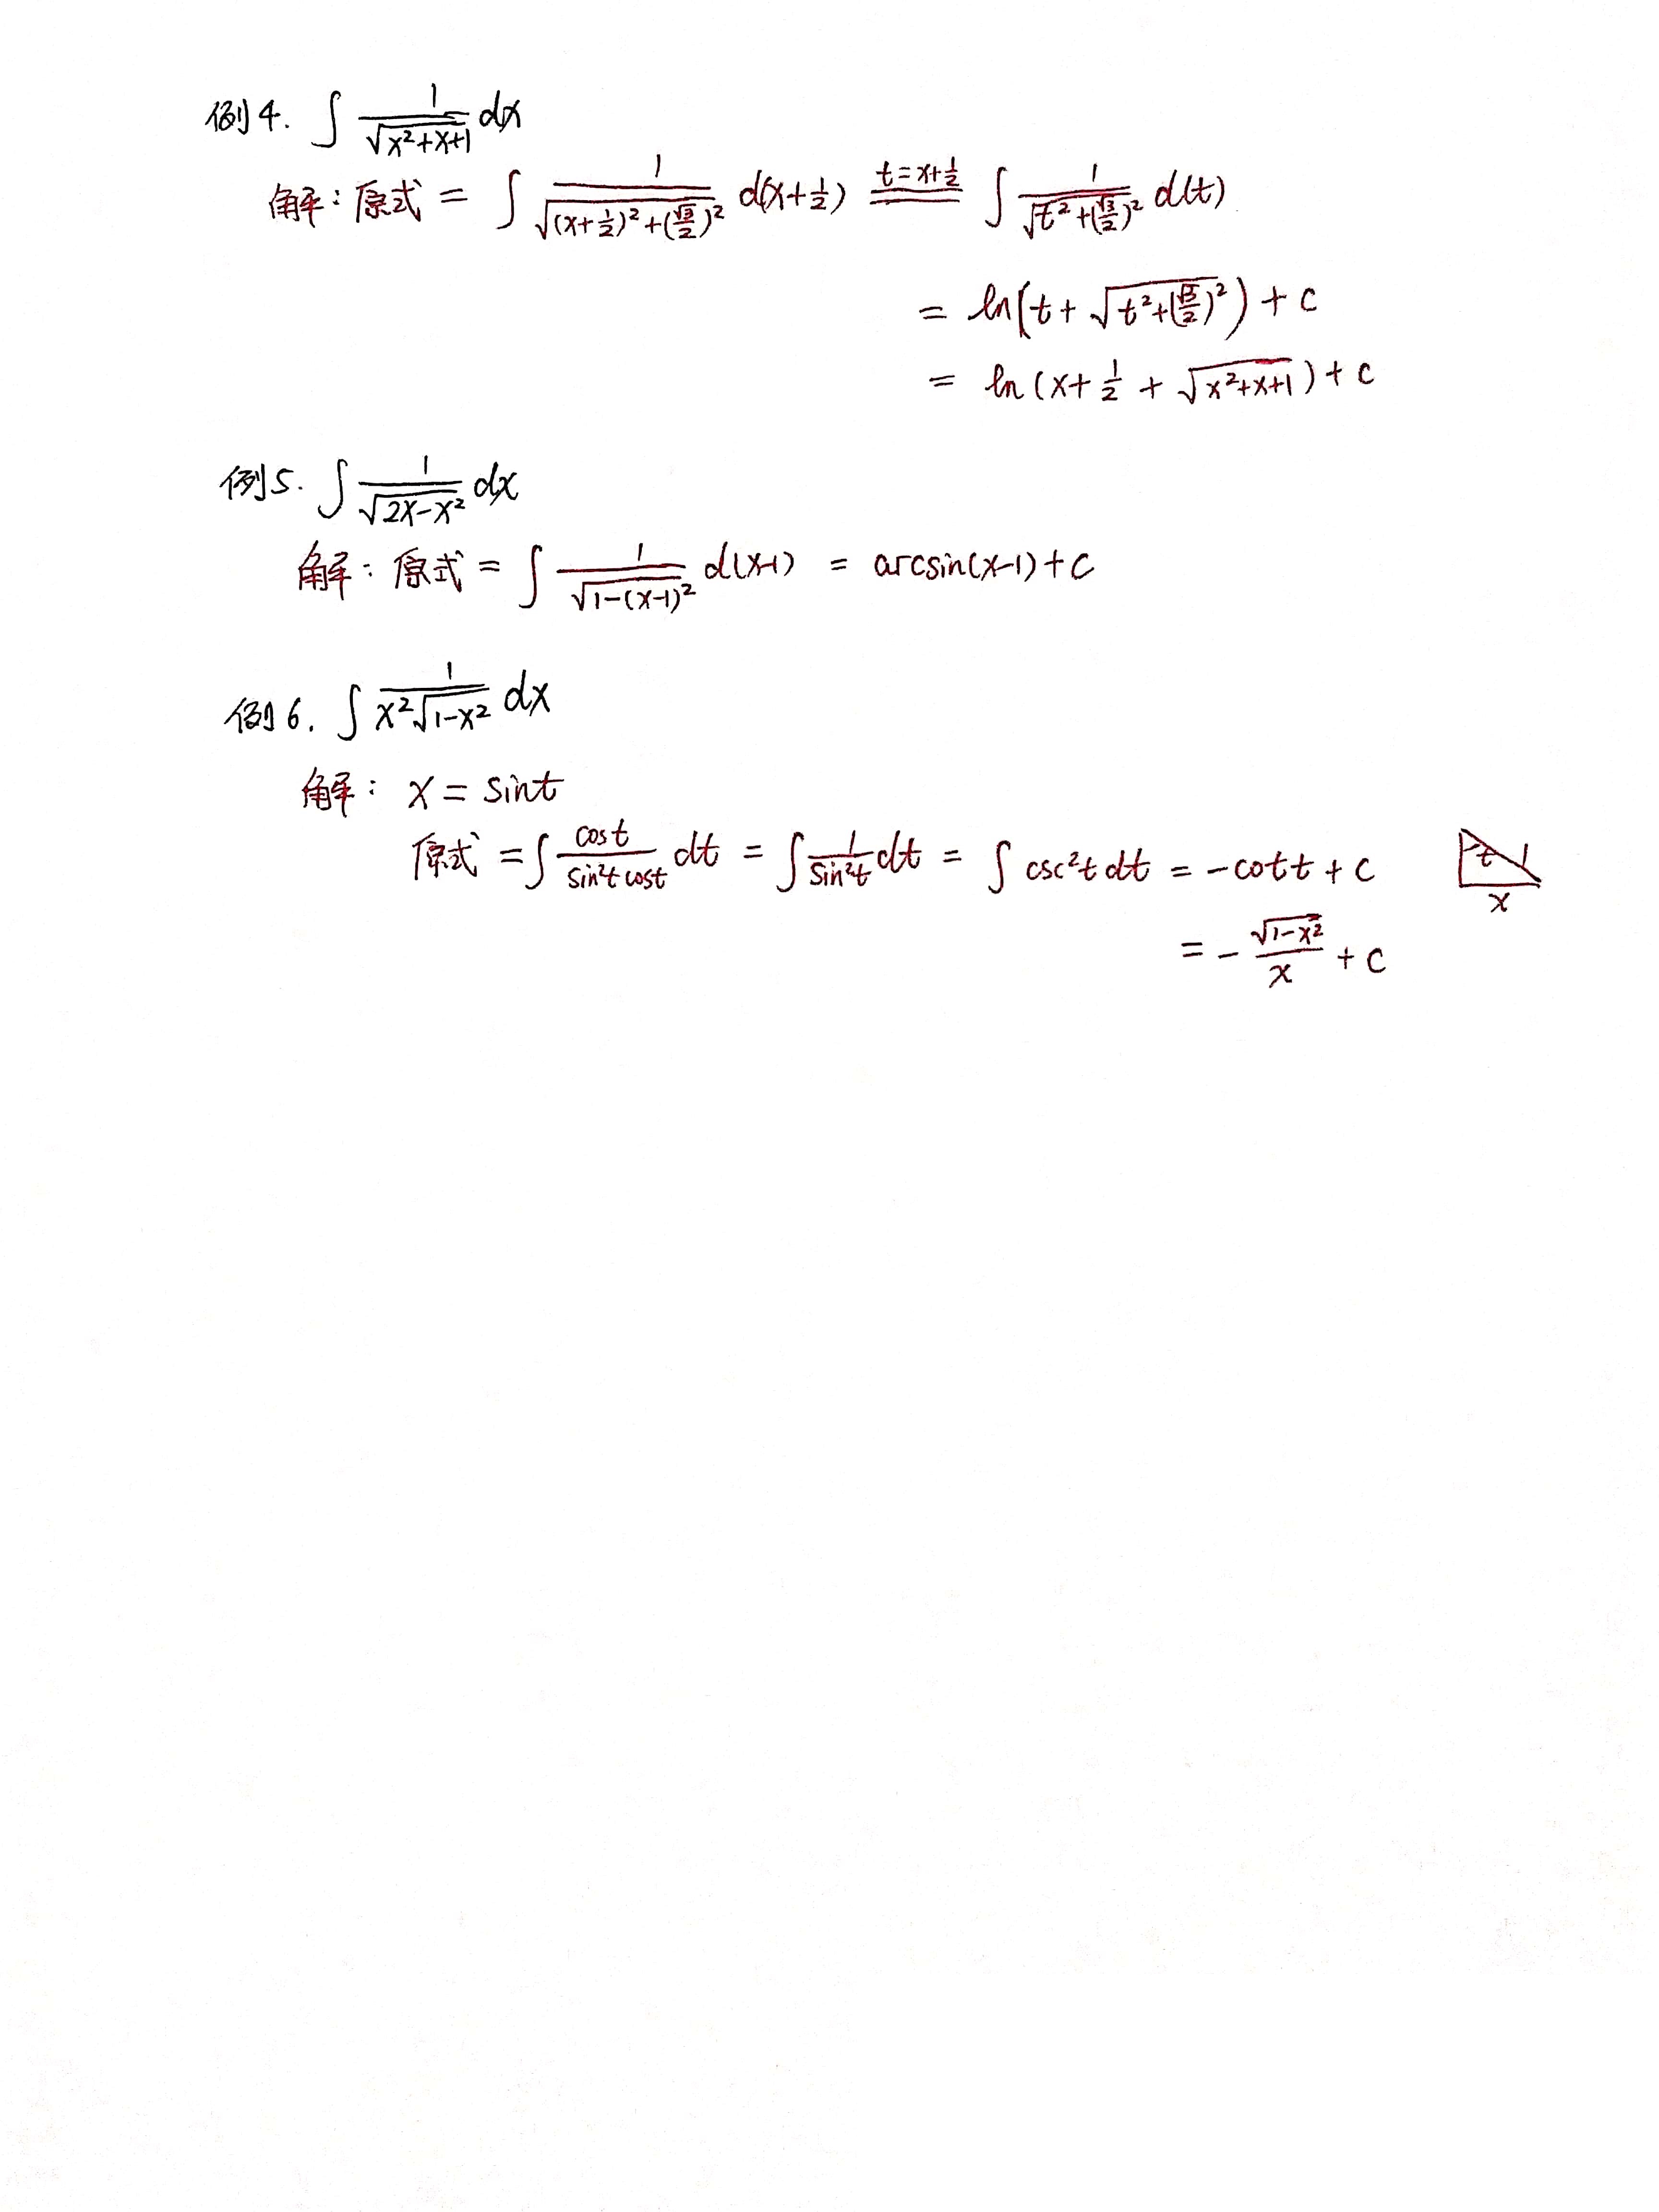 例4. ∫ 1/√(x²+x+1) dx
解：原式 = ∫ 1/√((x+1/2)²+(√3/2)²) d(x+1/2) =(t=x+1/2)= ∫ 1/√(t²+(√3/2)²) d(t)
= ln(t+√(t²+(√3/2)²))+c
= ln(x+1/2+√(x²+x+1))+c
例5. ∫ 1/√(2x-x²) dx
解：原式 = ∫ 1/√(1-(x-1)²) d(x-1) = arcsin(x-1)+c
例6. ∫ 1/(x²√(1-x²)) dx
解：x = sint
原式 = ∫ cost/(sin²t cost) dt = ∫ 1/sin²t dt = ∫ csc²t dt = -cott+c
t 1
x
= -√(1-x²)/x + c